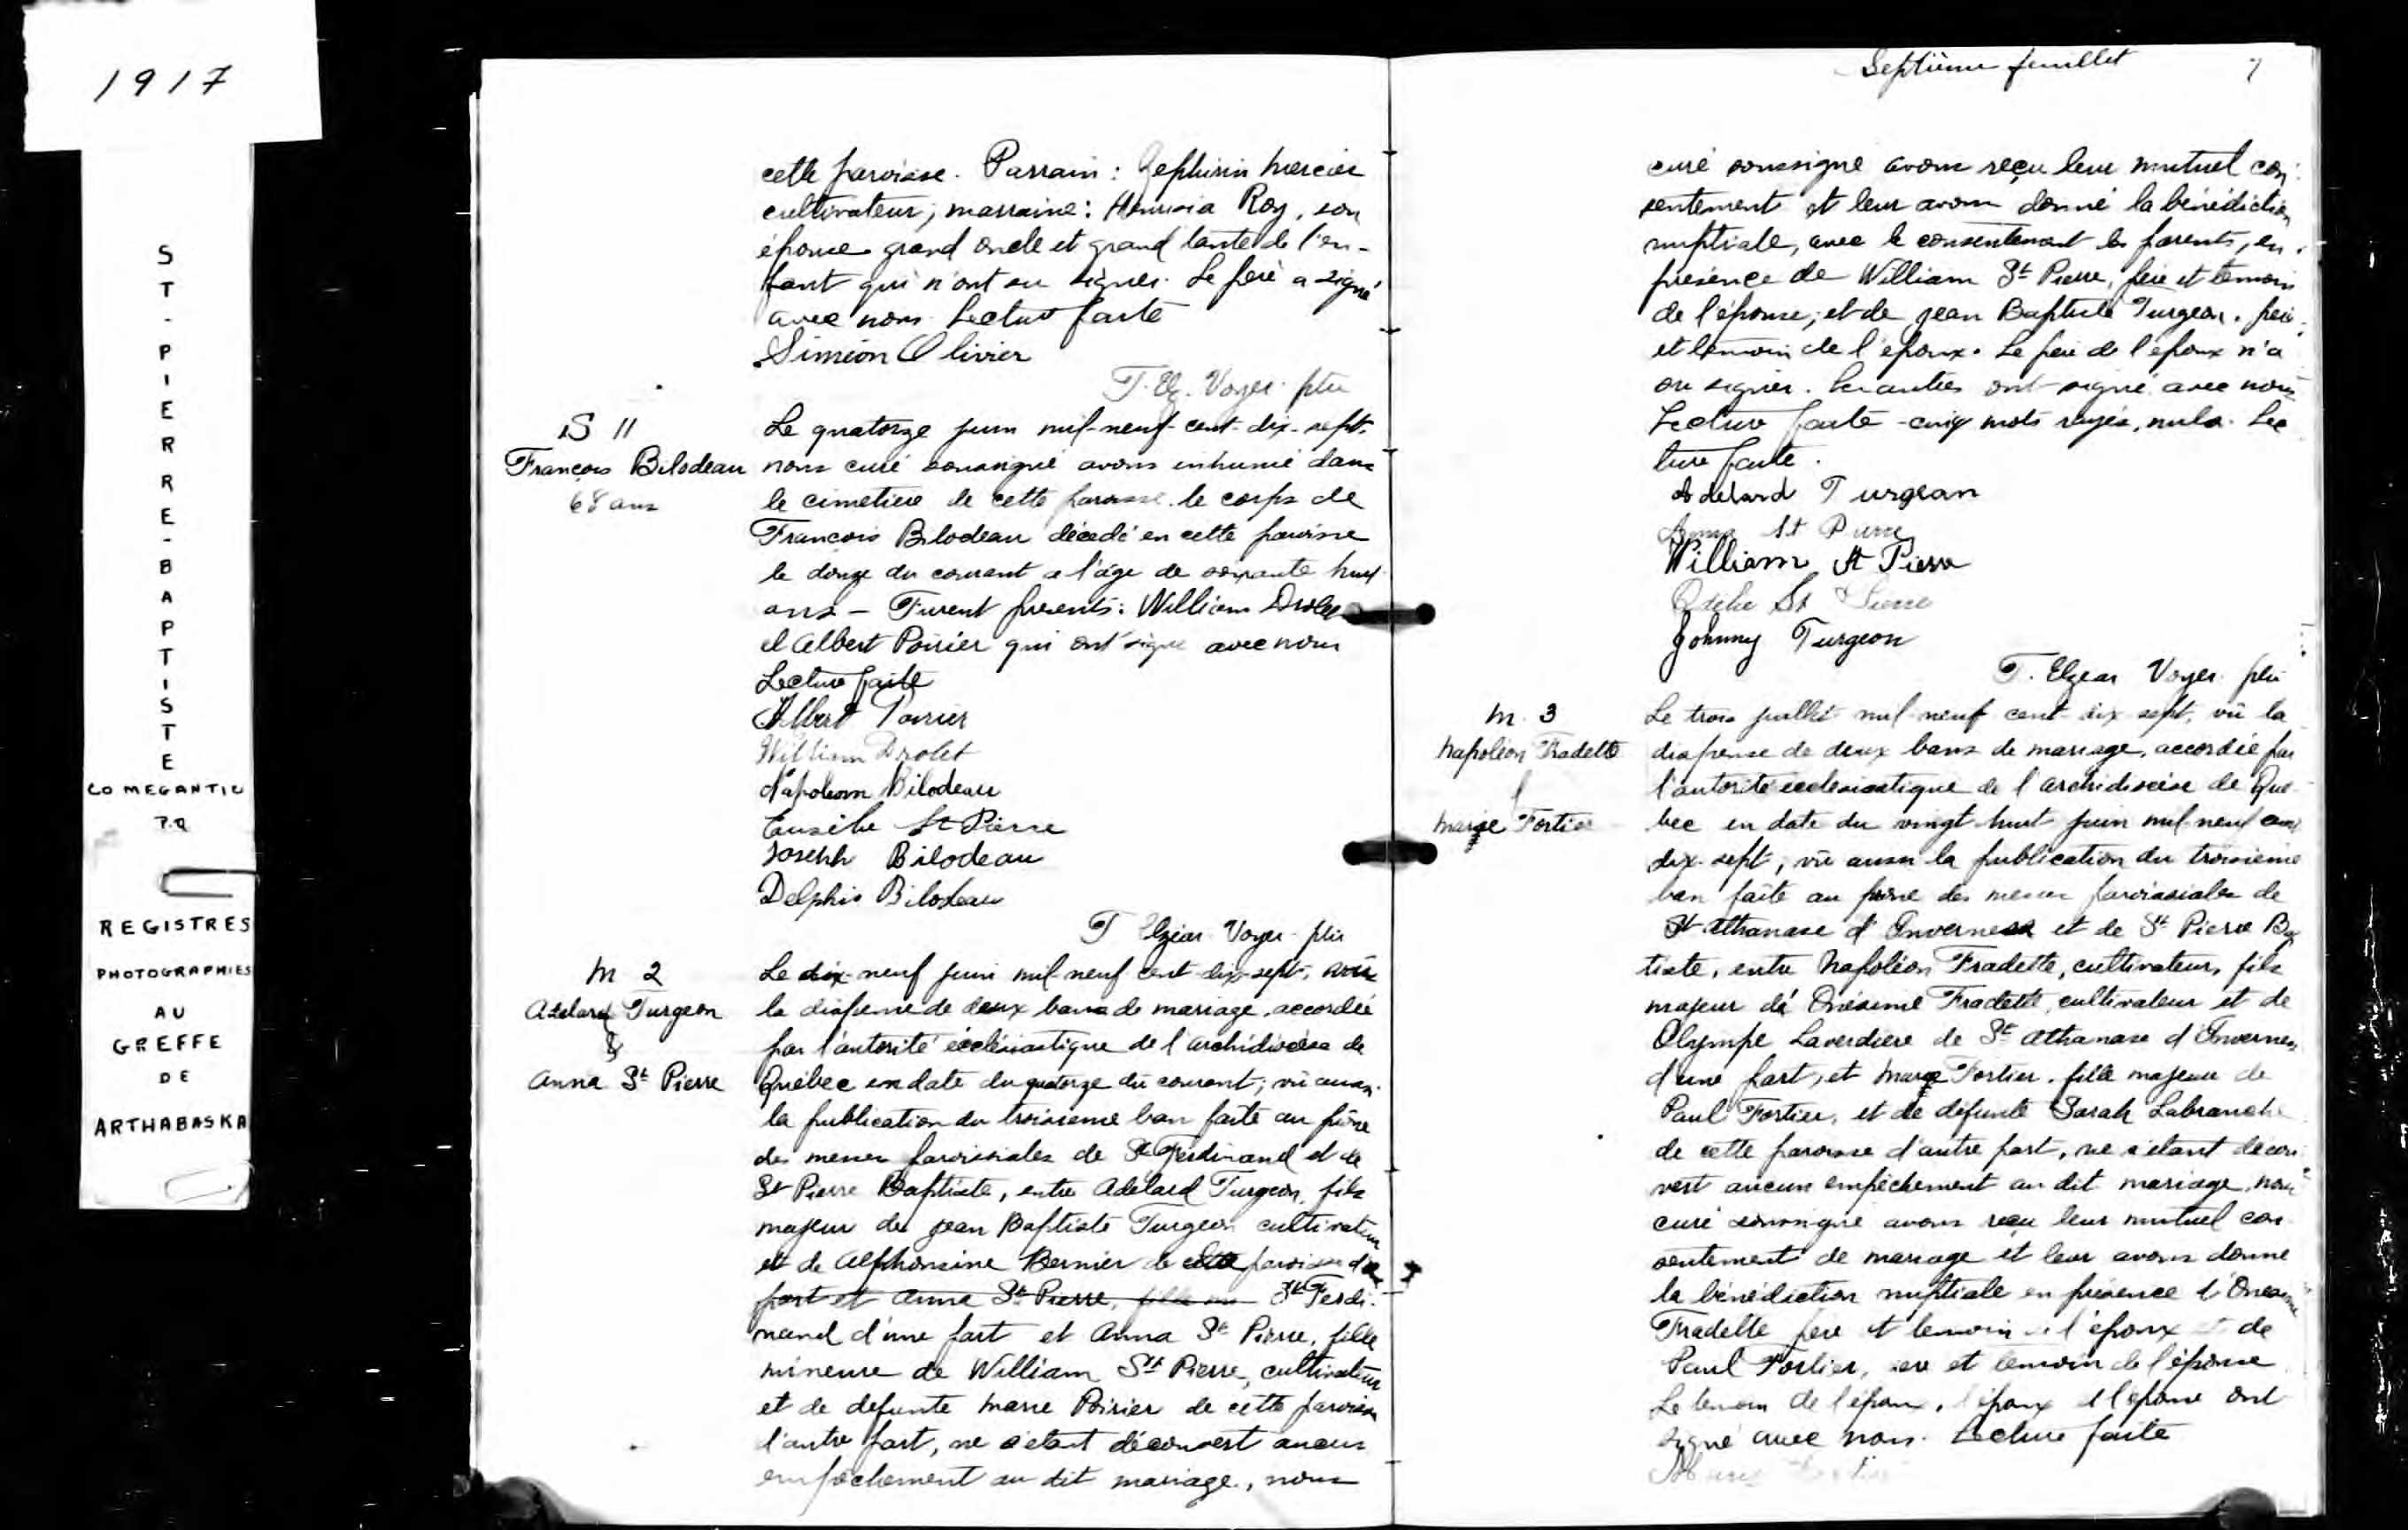 1917
ST-PIERRE-BAPTISTE
CO MEGANTIC
P.Q
REGISTRES
PHOTOGRAPHIES
AU
GREFFE
DE
ARTHABASKA
cette paroisse. Parrain: Zephirin Mercier
cultivateur; marraine: Henrisia Roy, son
épouse grand oncle et grand tante de l'en-
fant qui n'ont su signer. Le père a signé
avec nous. Lecture faite
Siméon Olivier
T. Elz. Voyer ptre
S 11
François Bilodeau
68 ans
Le quatorze juin mil-neuf-cent-dix-sept,
nous curé soussigné avons inhumé dans
le cimetière de cette paroisse le corps de
François Bilodeau décédé en cette paroisse
le douze du courant a l'âge de soixante huit
ans - Furent présents: William Drolet
et Albert Poirier qui ont signé avec nous
Lecture faite
Albert Poirier
William Drolet
Napoleon Bilodeau
Eusèbe St Pierre
Joseph Bilodeau
Delphis Bilodeau
T Elzéar Voyer ptre
M 2
Adelard Turgeon
&
Anna St Pierre
Le dix-neuf juin mil neuf cent dix-sept, vu
la dispense de deux bans de mariage accordée
par l'autorité écclésiastique de l'archidiocèse de
Québec en date du quatorze du courant; vu aussi
la publication du troisième ban faite au prône
des messes paroissiales de St Ferdinand et de
St Pierre Baptiste, entre Adélard Turgeon, fils
majeur de Jean Baptiste Turgeon cultivateur
et de Alphonsine Bernier de cette paroisse d'une
part et Anna St Pierre, fille St Ferdi-
nand d'une part et Anna St Pierre, fille
mineure de William St Pierre, cultivateur
et de defunte Marie Poirier de cette paroisse
d'autre part, ne s'étant découvert aucun
empêchement au dit mariage, nous
Septième feuillet 7
curé soussigné avons reçu leur mutuel con-
sentement et leur avons donné la bénédiction
nuptiale, avec le consentement des parents, en
présence de William St Pierre, père et témoin
de l'épouse, et de Jean Baptiste Turgeon, père
et témoin de l'époux. Le père de l'époux n'a
su signer. Les autres ont signé avec nous
Lecture faite - cinq mots rayés, nuls. Lec
ture faite.
Adelard Turgeon
Anna St Pierre
William St Pierre
St Pierre
Johnny Turgeon
T. Elzear Voyer ptre
M. 3
Napoléon Fradette
&
Marie Fortier
Le trois juillet mil-neuf cent-dix sept, vu la
dispense de deux bans de mariage, accordée par
l'autorité ecclésiastique de l'archidiocèse de Qué-
bec en date du vingt huit juin mil-neuf cent
dix-sept, vu aussi la publication du troisième
ban faite au prône des messes paroissiales de
St Athanase d'Inverness et de St Pierre Bap
tiste, entre Napoléon Fradette, cultivateur, fils
majeur de Onésime Fradette, cultivateur et de
Olympe Laverdiere de St Athanase d'Inverness
d'une part, et Marie Fortier, fille majeure de
Paul Fortier, et de défunte Sarah Labranche
de cette paroisse d'autre part, ne s'étant décou-
vert aucun empêchement au dit mariage, nous
curé soussigné avons reçu leur mutuel con-
sentement de mariage et leur avons donné
la bénédiction nuptiale en présence d'Onesime
Fradette père et témoin de l'époux et de
Paul Fortier, père et témoin de l'épouse
Le témoin de l'époux, l'époux et l'épouse ont
signé avec nous. Lecture faite